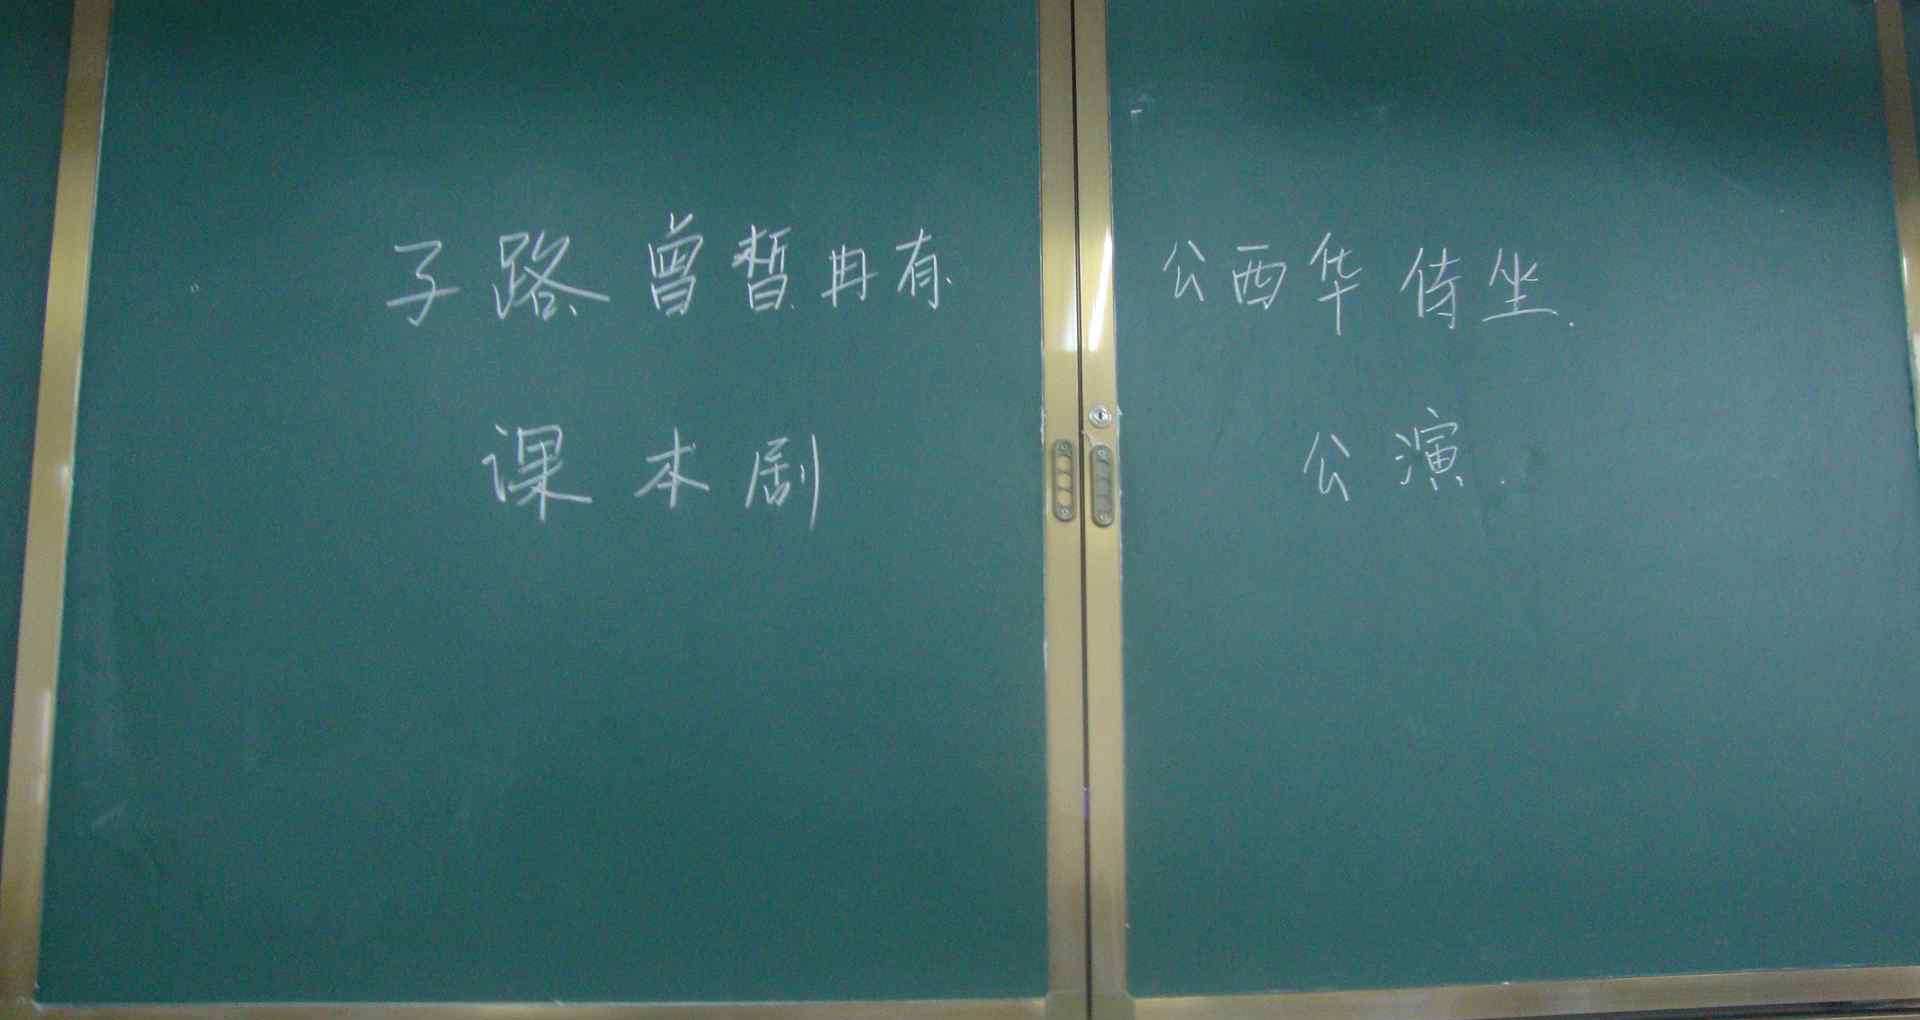 子路曾晳冉有公西华侍坐.
课本剧公演.